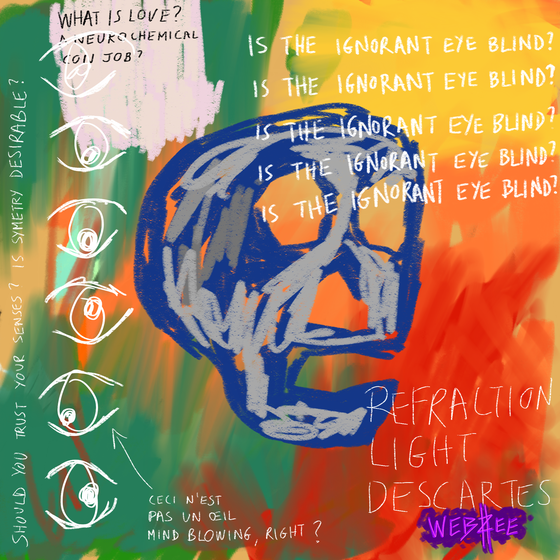 WHAT IS LOVE?
A NEUROCHEMICAL
CON JOB?
IS THE IGNORANT EYE BLIND?
IS THE IGNORANT EYE BLIND?
IS THE IGNORANT EYE BLIND?
IS THE IGNORANT EYE BLIND?
IS THE IGNORANT EYE BLIND?
SHOULD YOU TRUST YOUR SENSES? IS SYMETRY DESIRABLE?
REFRACTION
LIGHT
DESCARTES
CECI N'EST
PAS UN ŒIL
MIND BLOWING, RIGHT?
WEBZEE